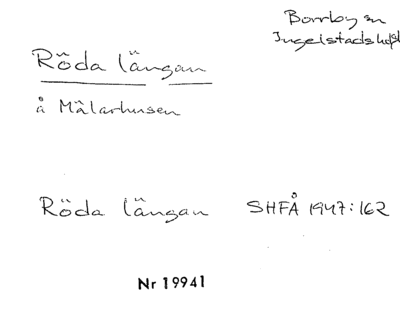 Borrby sn
Ingelstads hd
Röda längan
å Mälarhusen
Röda längan SHFÅ 1947:162
Nr 19941